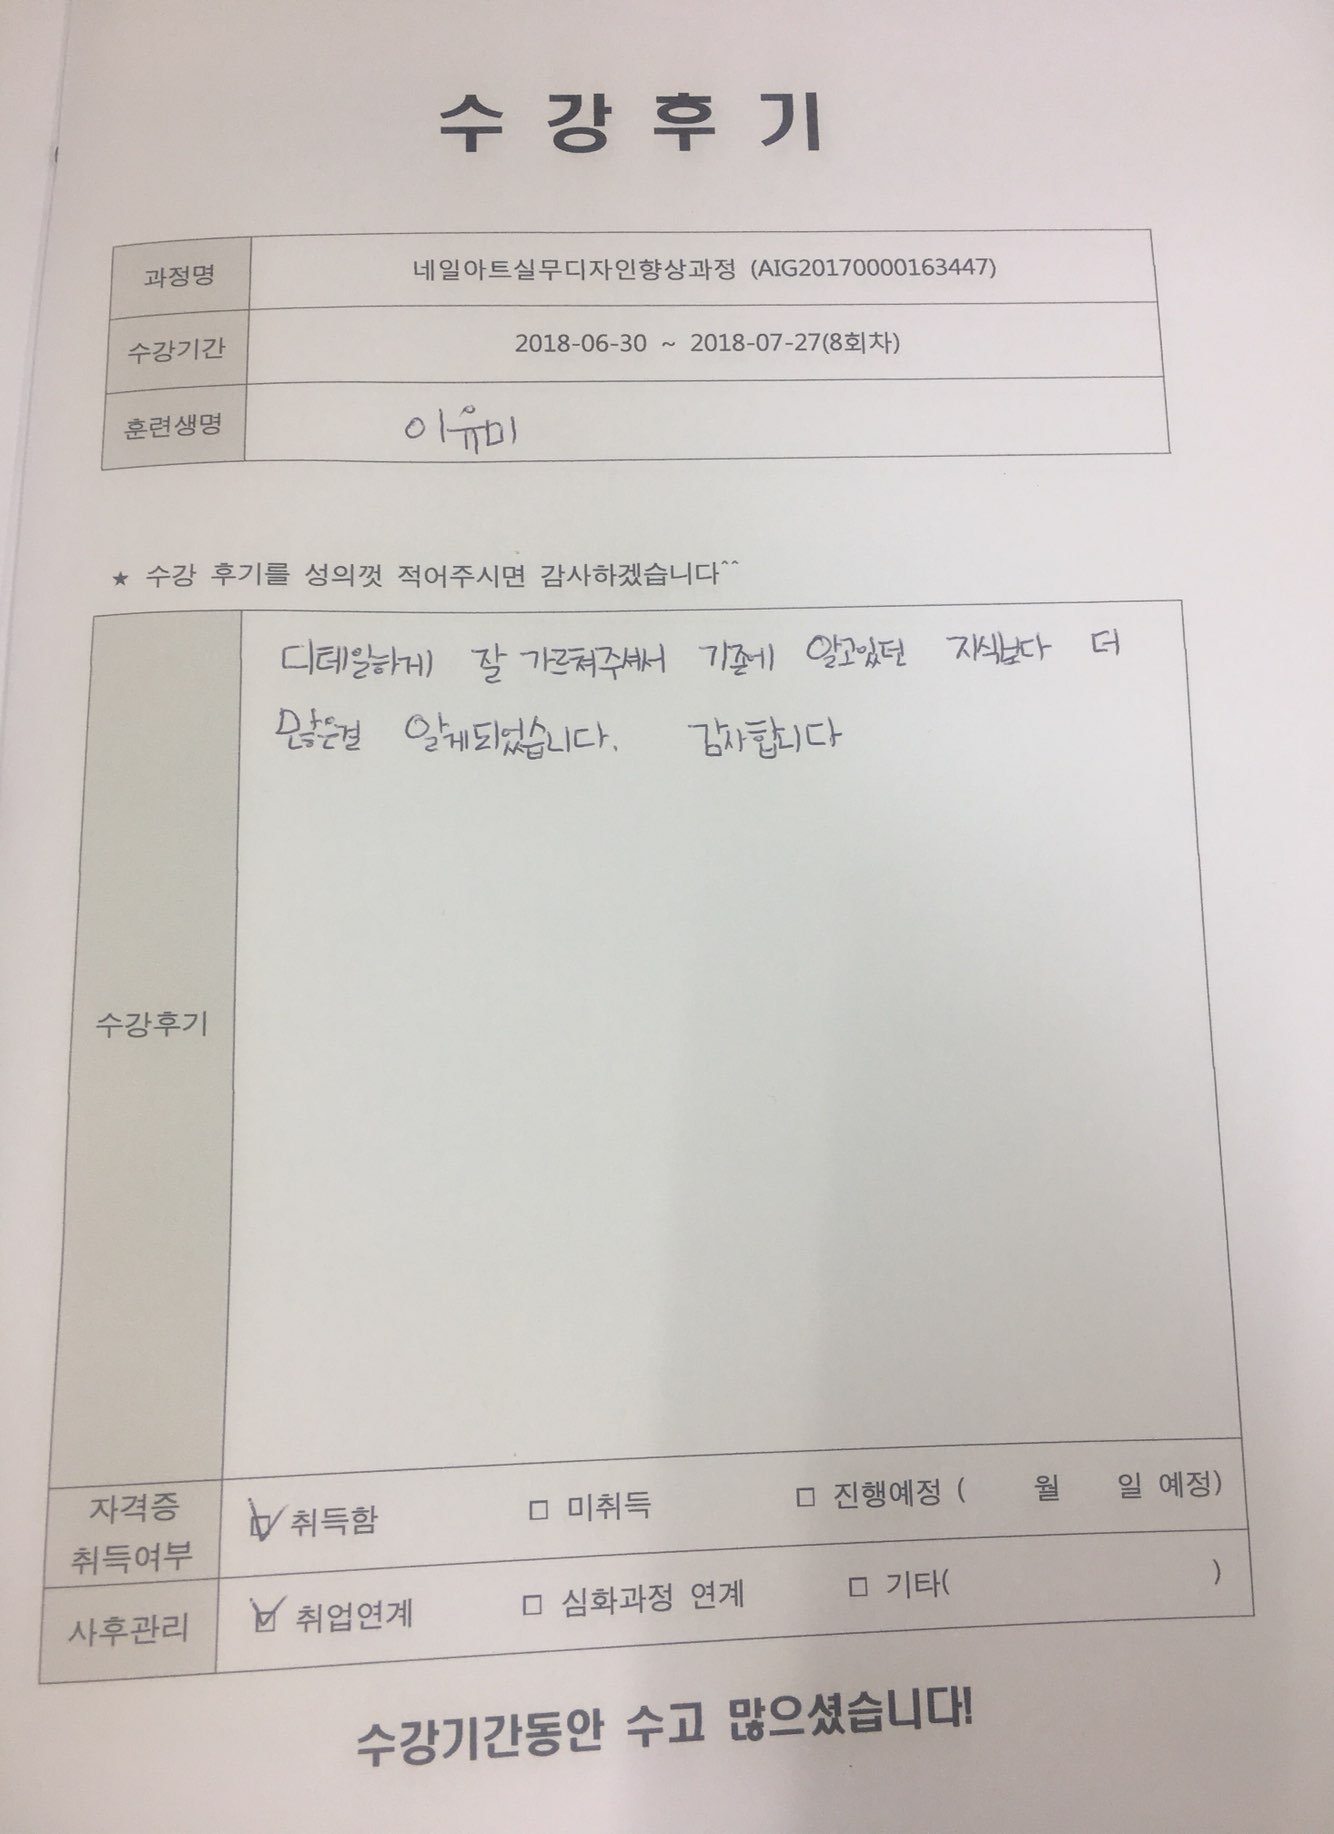 수 강 후 기
과정명 네일아트실무디자인향상과정 (AIG20170000163447)
수강기간 2018-06-30 ~ 2018-07-27(8회차)
훈련생명 이유미
★ 수강 후기를 성의껏 적어주시면 감사하겠습니다^^
디테일하게 잘 가르쳐주셔서 기존에 알고있던 지식보다 더
많은걸 알게되었습니다. 감사합니다
수강후기
자격증
취득여부
☑ 취득함 □ 미취득 □ 진행예정 ( 월 일 예정)
사후관리 ☑ 취업연계 □ 심화과정 연계 □ 기타( )
수강기간동안 수고 많으셨습니다!